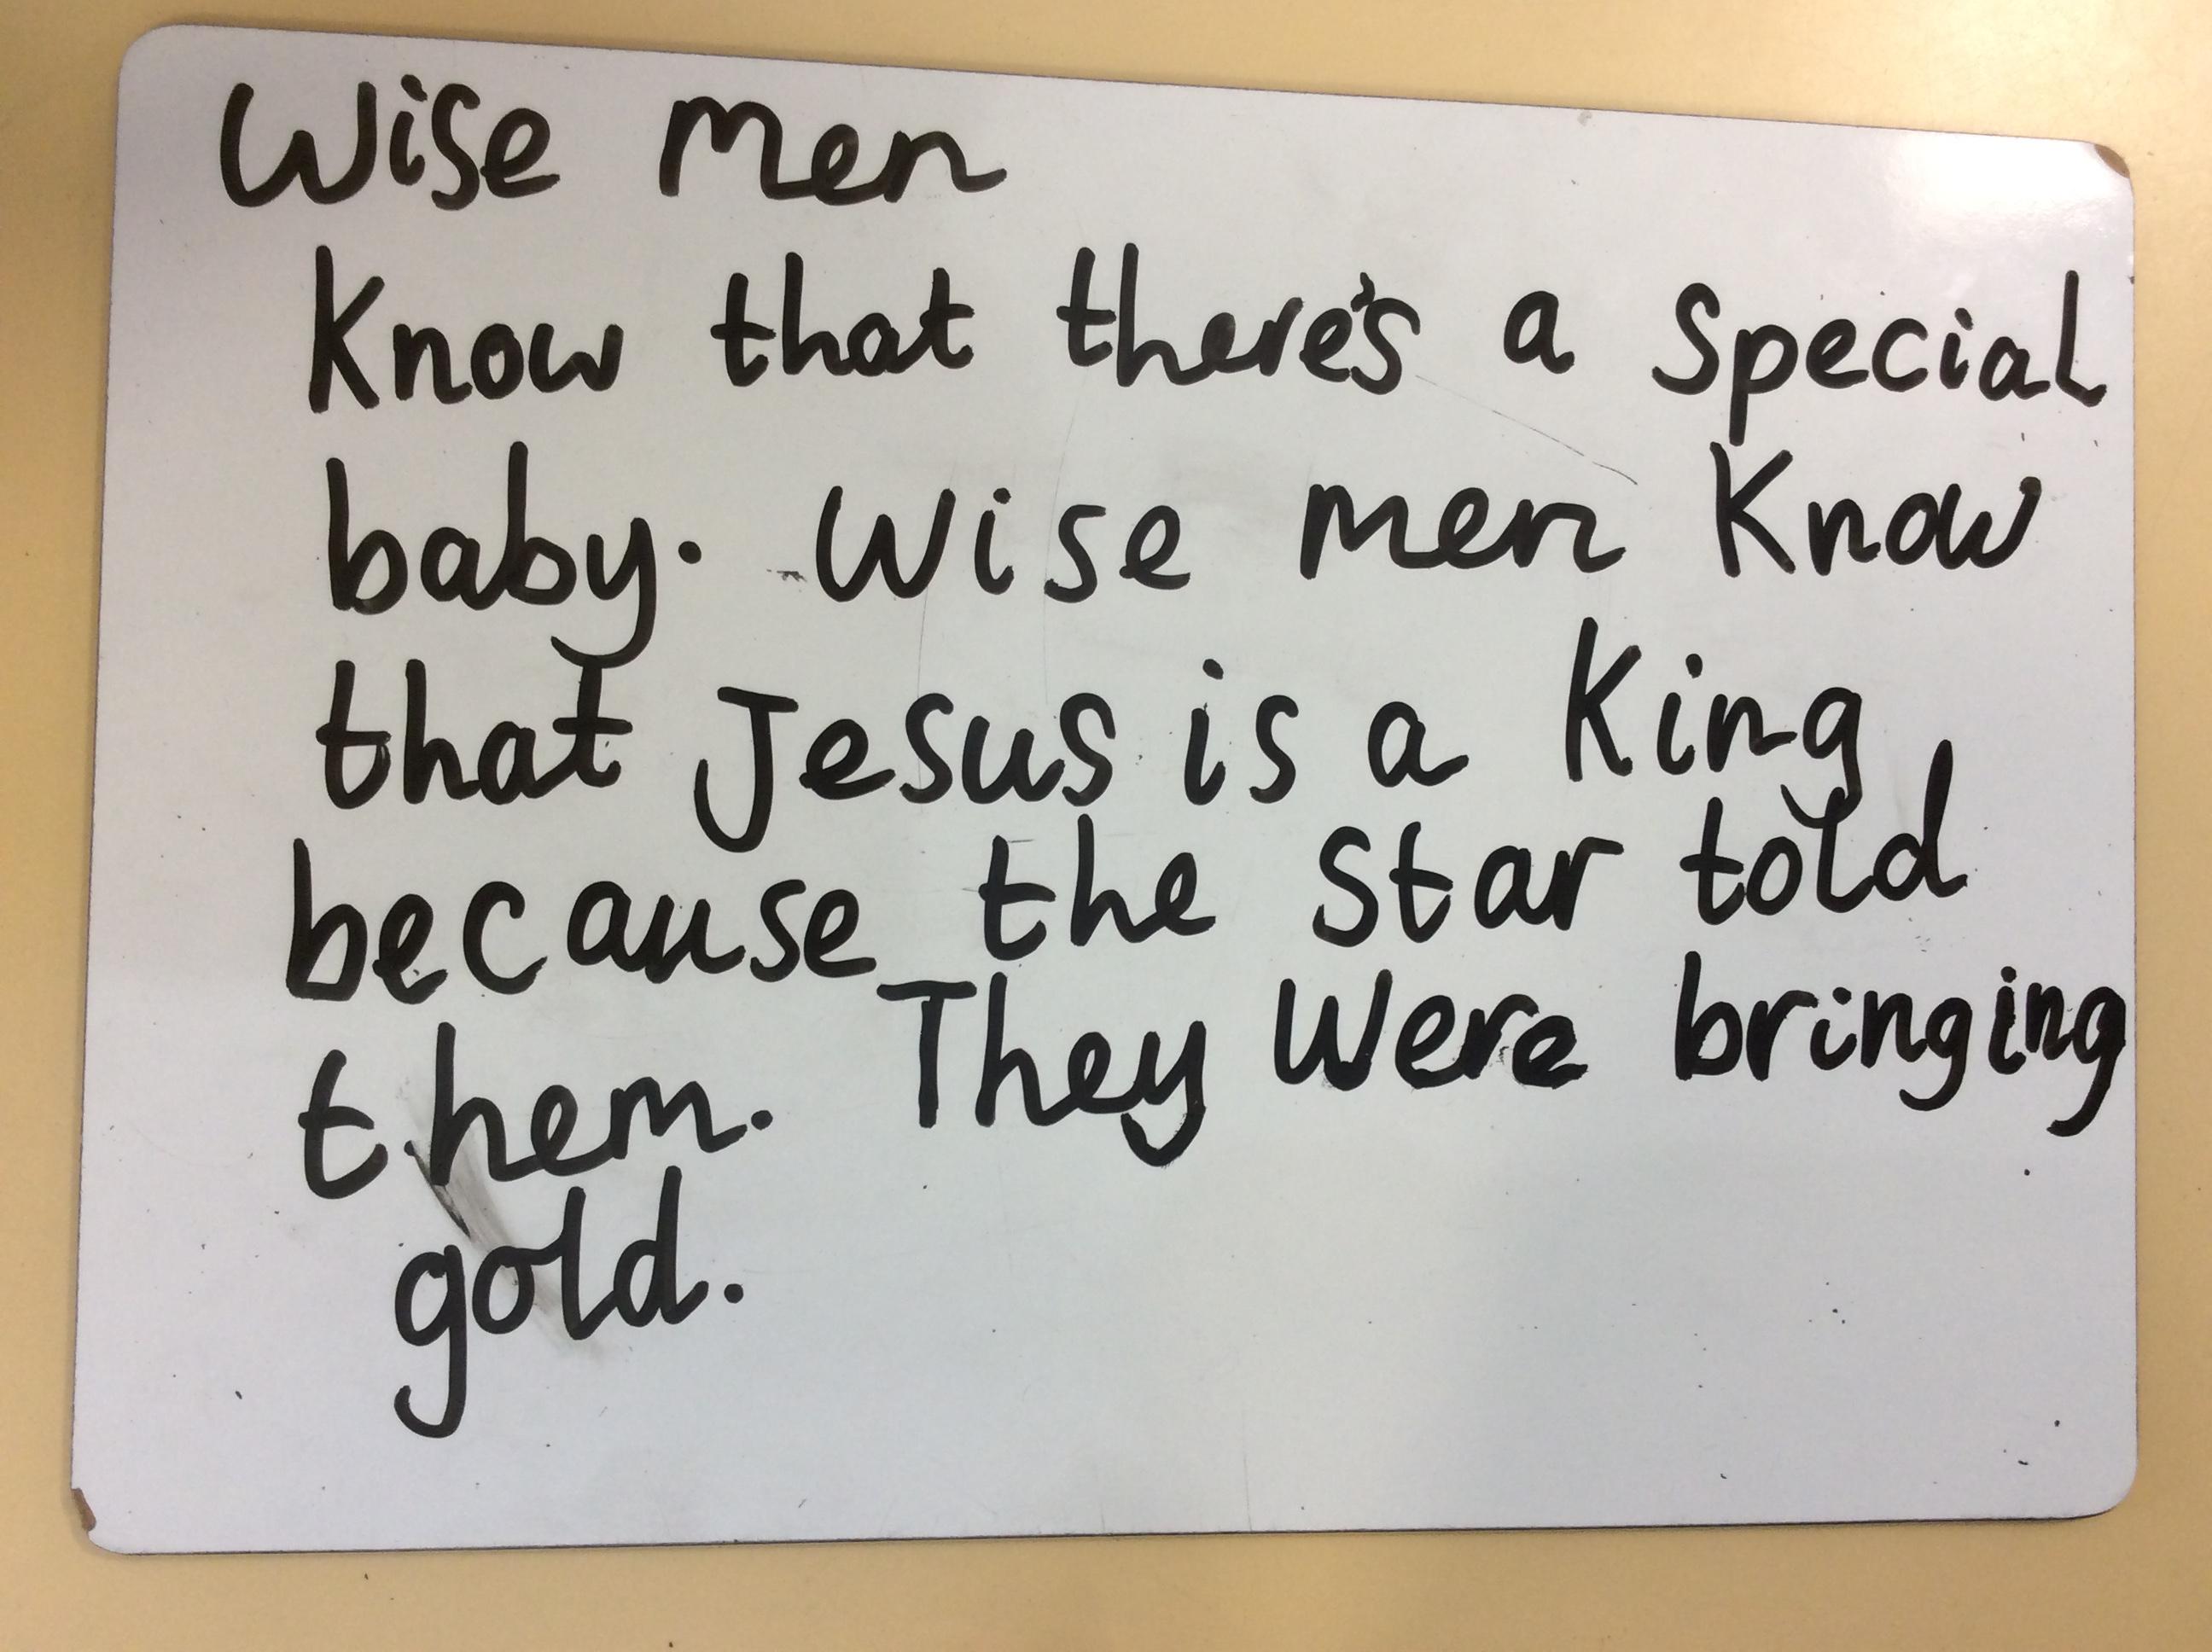 Wise men
Know that there's a special
baby. Wise men Know
that Jesus is a King
because the star told
them. They were bringing
gold.